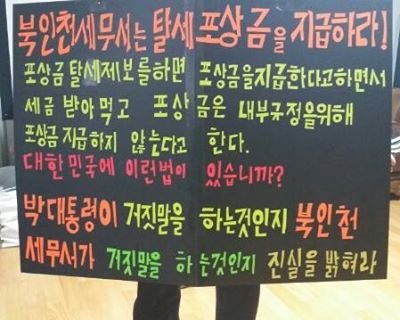 북인천세무서는 탈세포상금을 지급하라!
포상금 탈세제보를하면 포상금을지급한다고하면서
세금 받아먹고 포상금은 내부규정을위해
포상금 지급하지 않는다고 한다.
대한민국에 이런법이 있습니까?
박대통령이 거짓말을 하는것인지 북인천
세무서가 거짓말을 하는것인지 진실을 밝혀라